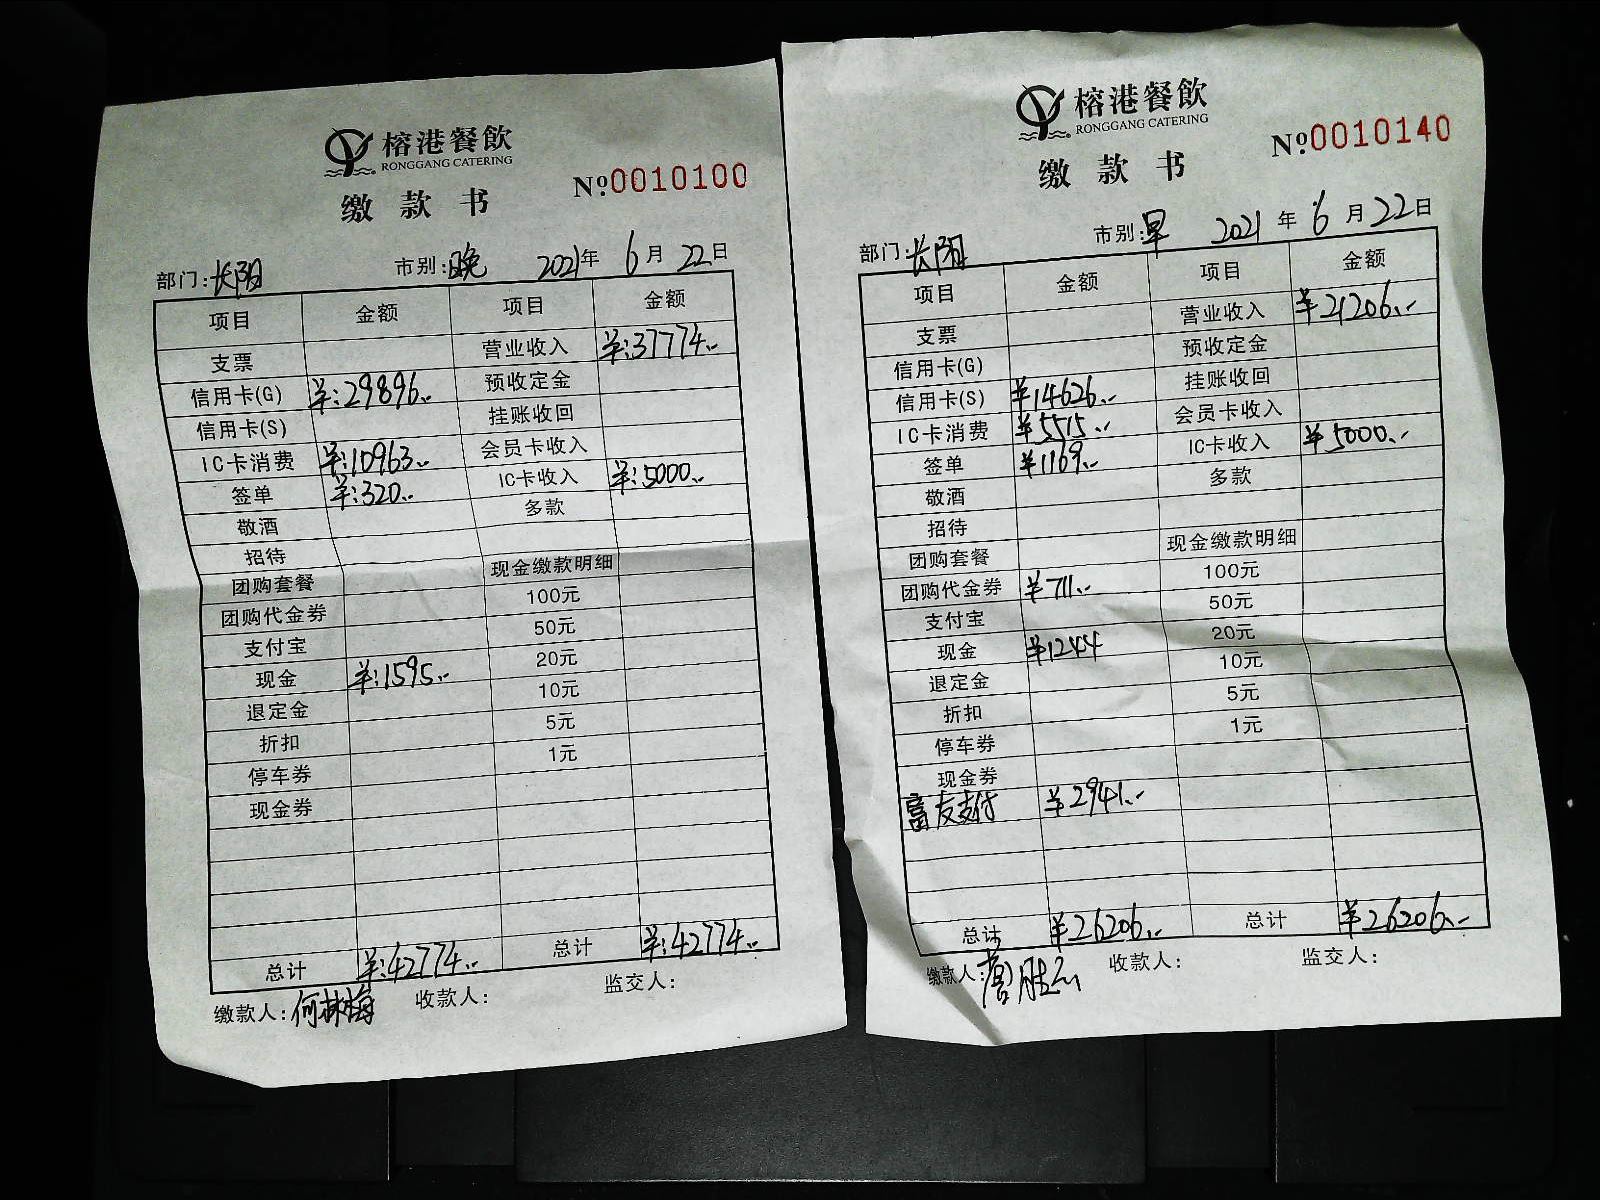 榕港餐飲
RONGGANG CATERING
缴款书
№0010100
部门:长阳 市别:晚 2021年6月22日
项目 金额 项目 金额
支票 营业收入 ¥:37774.-
信用卡(G) ¥:29896.- 预收定金
信用卡(S) 挂账收回
IC卡消费 ¥:10963.- 会员卡收入
签单 ¥:320.- IC卡收入 ¥:5000.-
敬酒 多款
招待
团购套餐 现金缴款明细
团购代金券 100元
支付宝 50元
现金 ¥:1595.- 20元
退定金 10元
折扣 5元
停车券 1元
现金券
总计 ¥:42774.- 总计 ¥:42774.-
缴款人:何林梅 收款人: 监交人:
榕港餐飲
RONGGANG CATERING
缴款书
№0010140
部门:长阳 市别:早 2021年6月22日
项目 金额 项目 金额
支票 营业收入 ¥21206.-
信用卡(G) 预收定金
信用卡(S) ¥14626.- 挂账收回
IC卡消费 ¥5515.- 会员卡收入
签单 ¥1169.- IC卡收入 ¥5000.-
敬酒 多款
招待
团购套餐 现金缴款明细
团购代金券 ¥711.- 100元
支付宝 50元
现金 ¥1244 20元
退定金 10元
折扣 5元
停车券 1元
现金券
富友支付 ¥2941.-
总计 ¥26206.- 总计 ¥26206.-
缴款人: 收款人: 监交人: